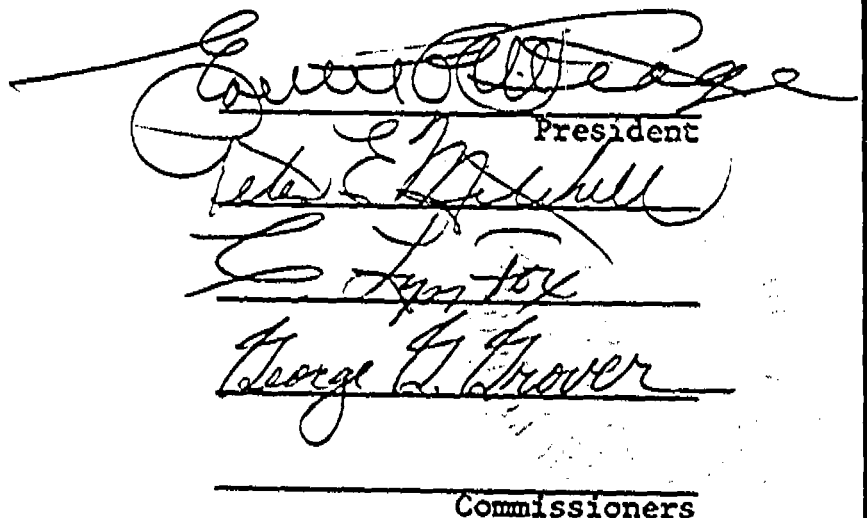 President
Peter E Mitchell
E Lyn Fox
George G. Grover
Commissioners